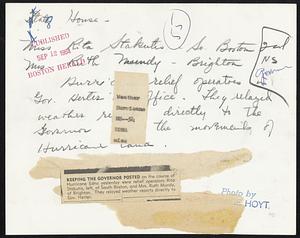 State House -
Miss Rita Stakutis So. Boston
PUBLISHED
SEP 12 1953
BOSTON HERALD
Mrs. Ruth Mundy - Brighton
relief operators
Gov. Herter's Office. They relayed
weather re directly to the
Governor the movements of
Hurricane
Weather
Hurricane
KEEPING THE GOVERNOR POSTED on the course of
Hurricane Edna yesterday were relief operators Rita
Stakutis, left, of South Boston, and Mrs. Ruth Mundy,
of Brighton. They relayed weather reports directly to
Gov. Herter.
Photo by
HOYT.